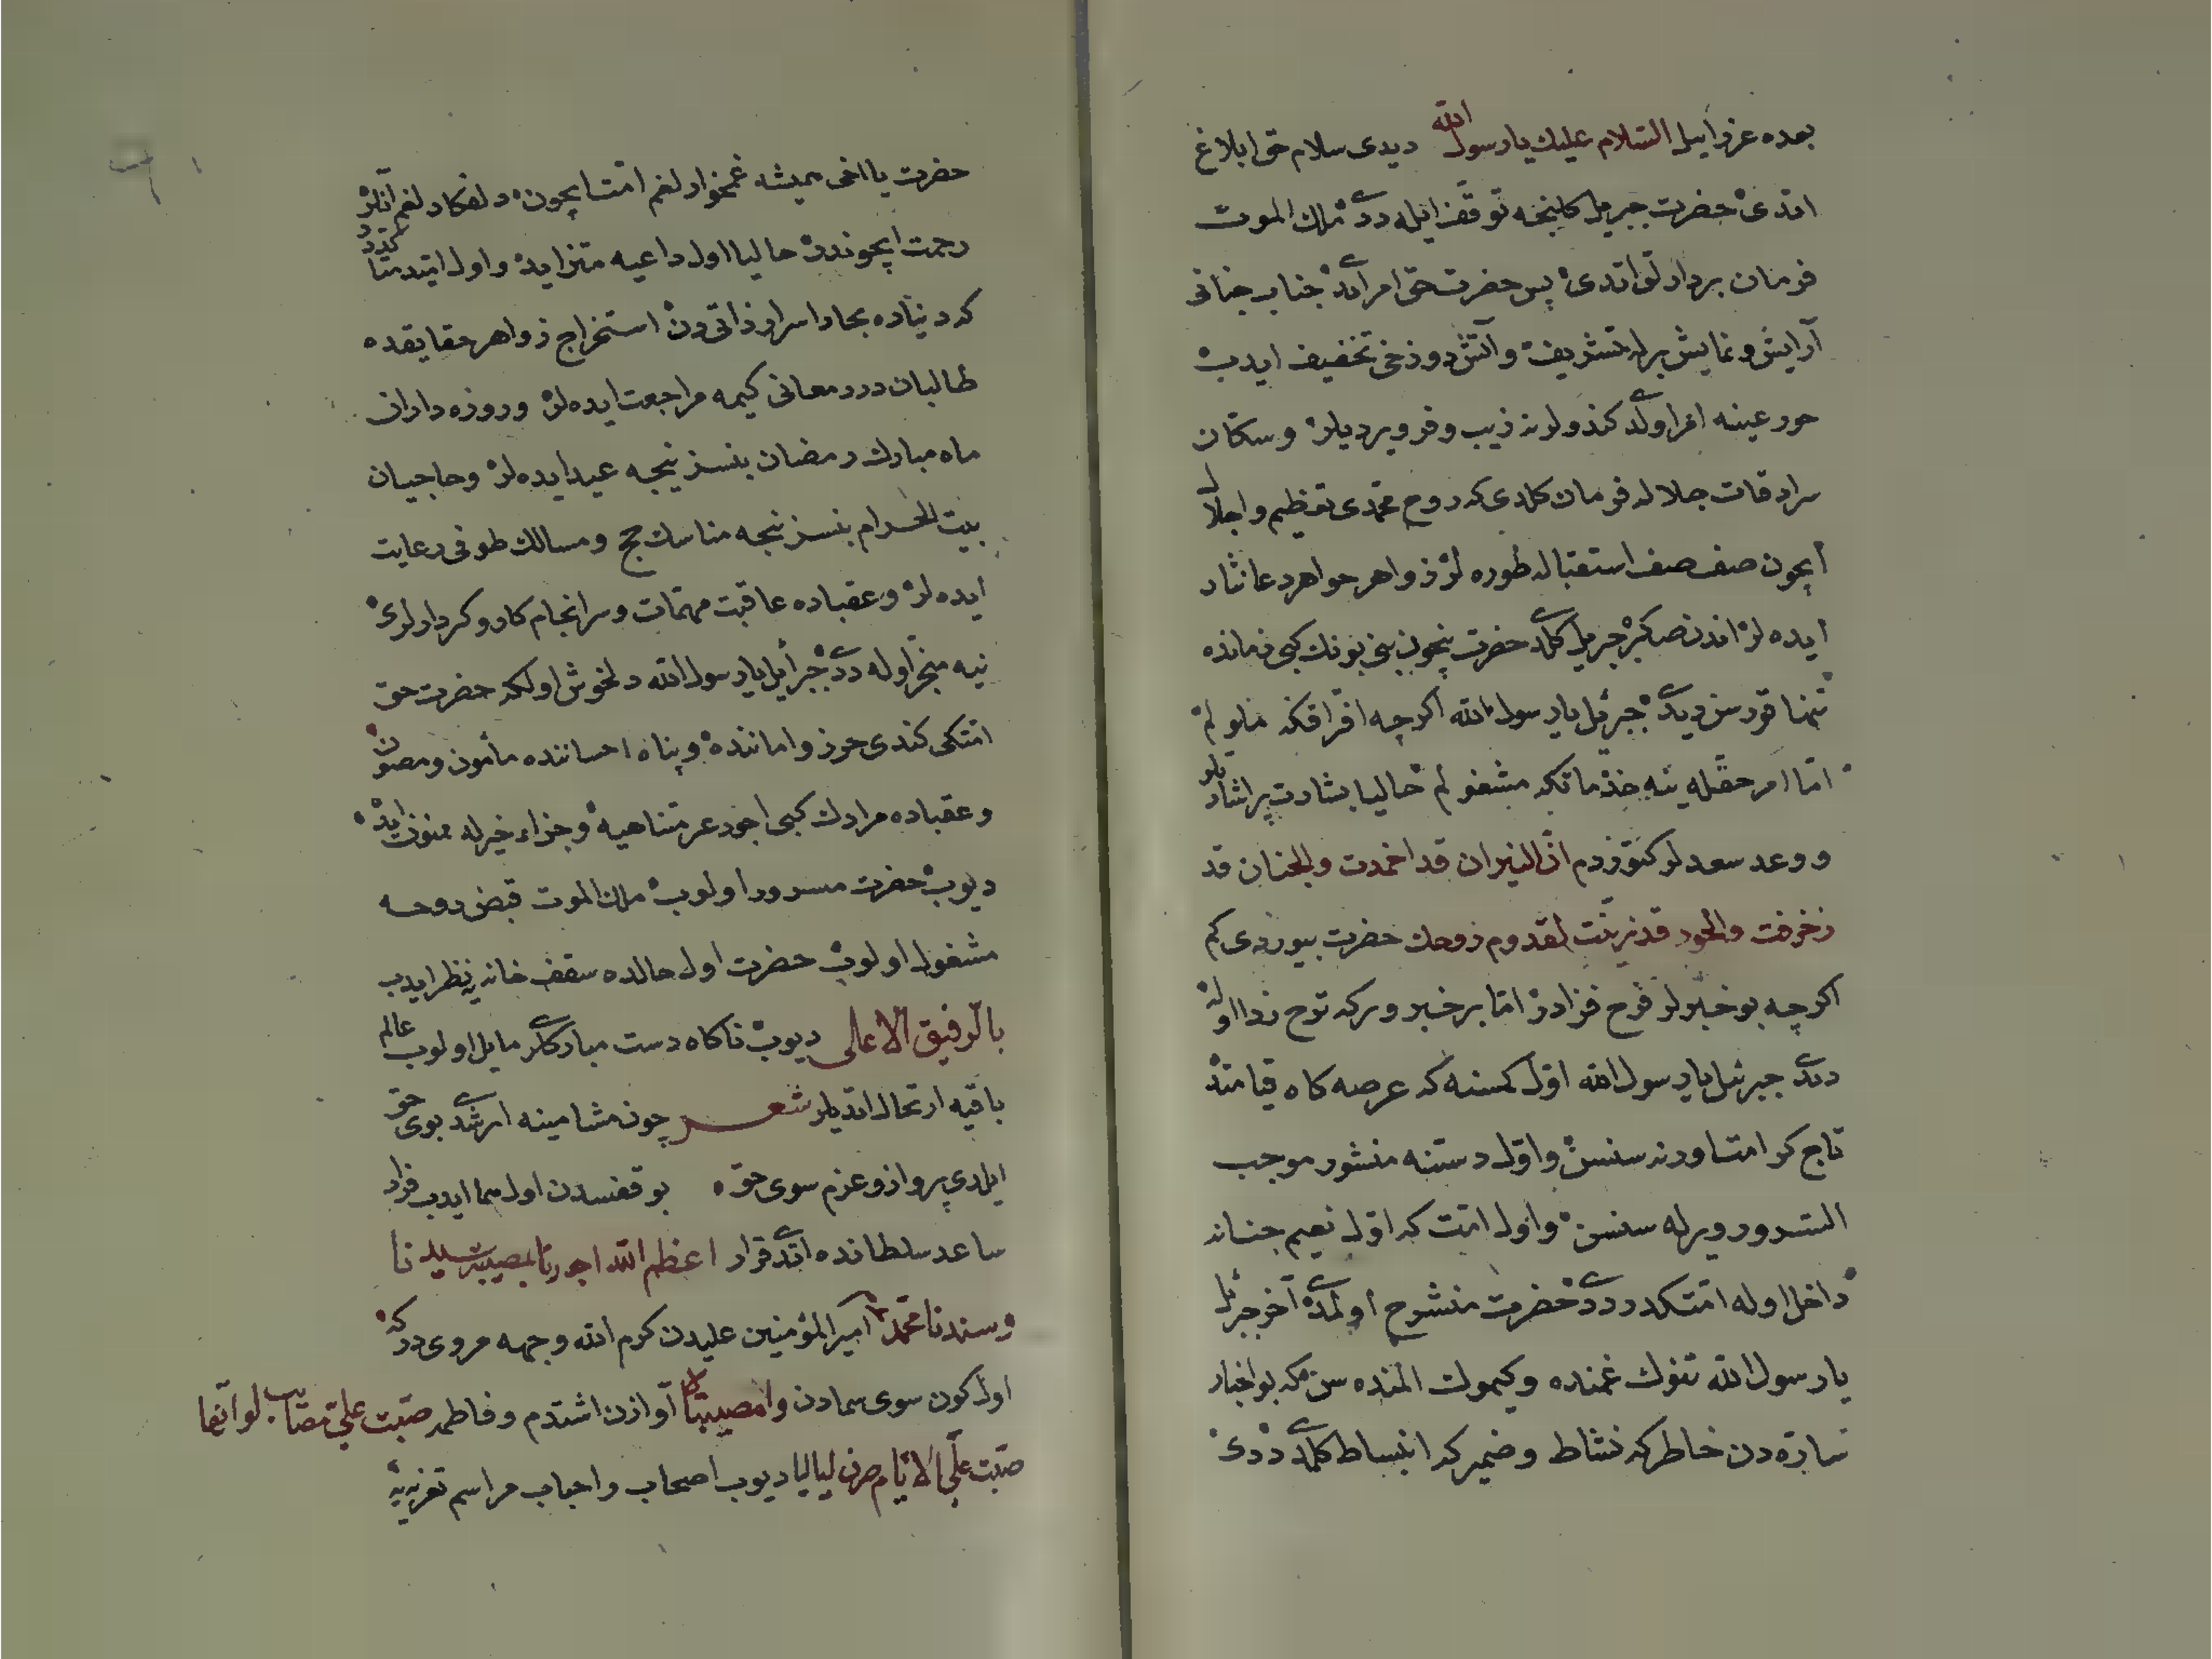 بعده عزرائيل السلام عليك يا رسول الله ديدى سلام حق ابلاغ
اتدى حضرت جبريل كلنجه توقف ايله ددى ملك الموت
فرمان بردارلق اتدى پس حضرت حق امر اتدى جناب جنانى
آرايش و نمايش برله تشريف و آتش دوزخى تخفيف ايدب
حور عينه امر اولدى كندولرنه زيب و فر ويرديلر و سكان
سرادقات جلاله فرمان كلدى كه روح محمدى تعظيم و اجلال
ايچون صف صف استقباله طوره لر زواهر جواهر دعا نثار
ايده لر اندن صكره جبريل كلدى حضرت نيچون بنى بونك كبى زمانده
تنها قورسن ديدى جبرئيل يا رسول الله اكرچه افراقكده
اما امر حقله ينه خذماتكه مشغولم حاليا بشارت پر اشارتلر
و وعد سعدلر كتوردم ان النيران قد اخمدت والجنان قد
زخرفت والحور قد تزينت لقدوم روحك حضرت بيوردى كم
اكرچه بو خبرلر فرح فزادر اما بر خبر وركه ترح زدا اوله
ددى جبرئيل يا رسول الله اول كمسنه كه عرصه كاه قيامتده
تاج كرامت اورنه سنسن و اول دستنه منشور موجب
السرور ويرله سنسن و اول امت كه اول نعيم جنانه
داخل اوله امتكدر ددى حضرت منشرح اولمدى آخر جبرئيل
يا رسول الله تنوك غمنده و كيموك المنده سن كه بو اخبار
سارّه دن خاطركه نشاط و ضميركه انبساط كلمدى ددى
حضرت يا اخى هميشه غمخوارلغم امت ايچون و دلفكارلغم آنلر
رحمت ايچوندر حاليا اول داعيه متزايد و اول
كه دنياده بحار اسرار ذاتى دن استخراج زواهر حقايقده
طالبان درر معانى كيمه مراجعت ايده لر و روزه داران
ماه مبارك رمضان بنسز نيجه عيد ايده لر و حاجيان
بيت الحرام بنسز نيجه مناسك حج و مسالك طوفى رعايت
ايده لر و عقباده عاقبت مهمات و سرانجام كار و كردارلرى
نيه منجر اوله ددى جبرأئيل يا رسول الله دلخوش اولكه حضرت حق
امتكى كندى حرز و اماننده و پناه احساننده مأمون و مصون
و عقباده مرادك كبى اجور غير متناهيه و جزاء خيرله ممنون ايده
ديوب حضرت مسرور اولوب ملك الموت قبض روحه
مشغول اولوب حضرت اول حالده سقف خانه يه نظر ايدب
بالرفيق الاعلى ديوب ناكاه دست مباركلرى مايل اولوب عالم
باقيه ارتحال اتديلر شعر چون مشامينه ارشدى بوى حق
ايلدى پرواز و عزم سوى حق بو قفسدن اول هما ايدب فرار
ساعد سلطانده اتدى قرار اعظم الله اجورنا بمصيبة سيدنا
وسندنا محمد امير المؤمنين عليدن كرم الله وجهه مروى در كه
اول كون سوى سمادن وا مصيبتاه آوازن اشتدم و فاطمه صبت علي مصايب لو انها
صبت على الايام صرن لياليا ديوب اصحاب و احباب مراسم تعزيه